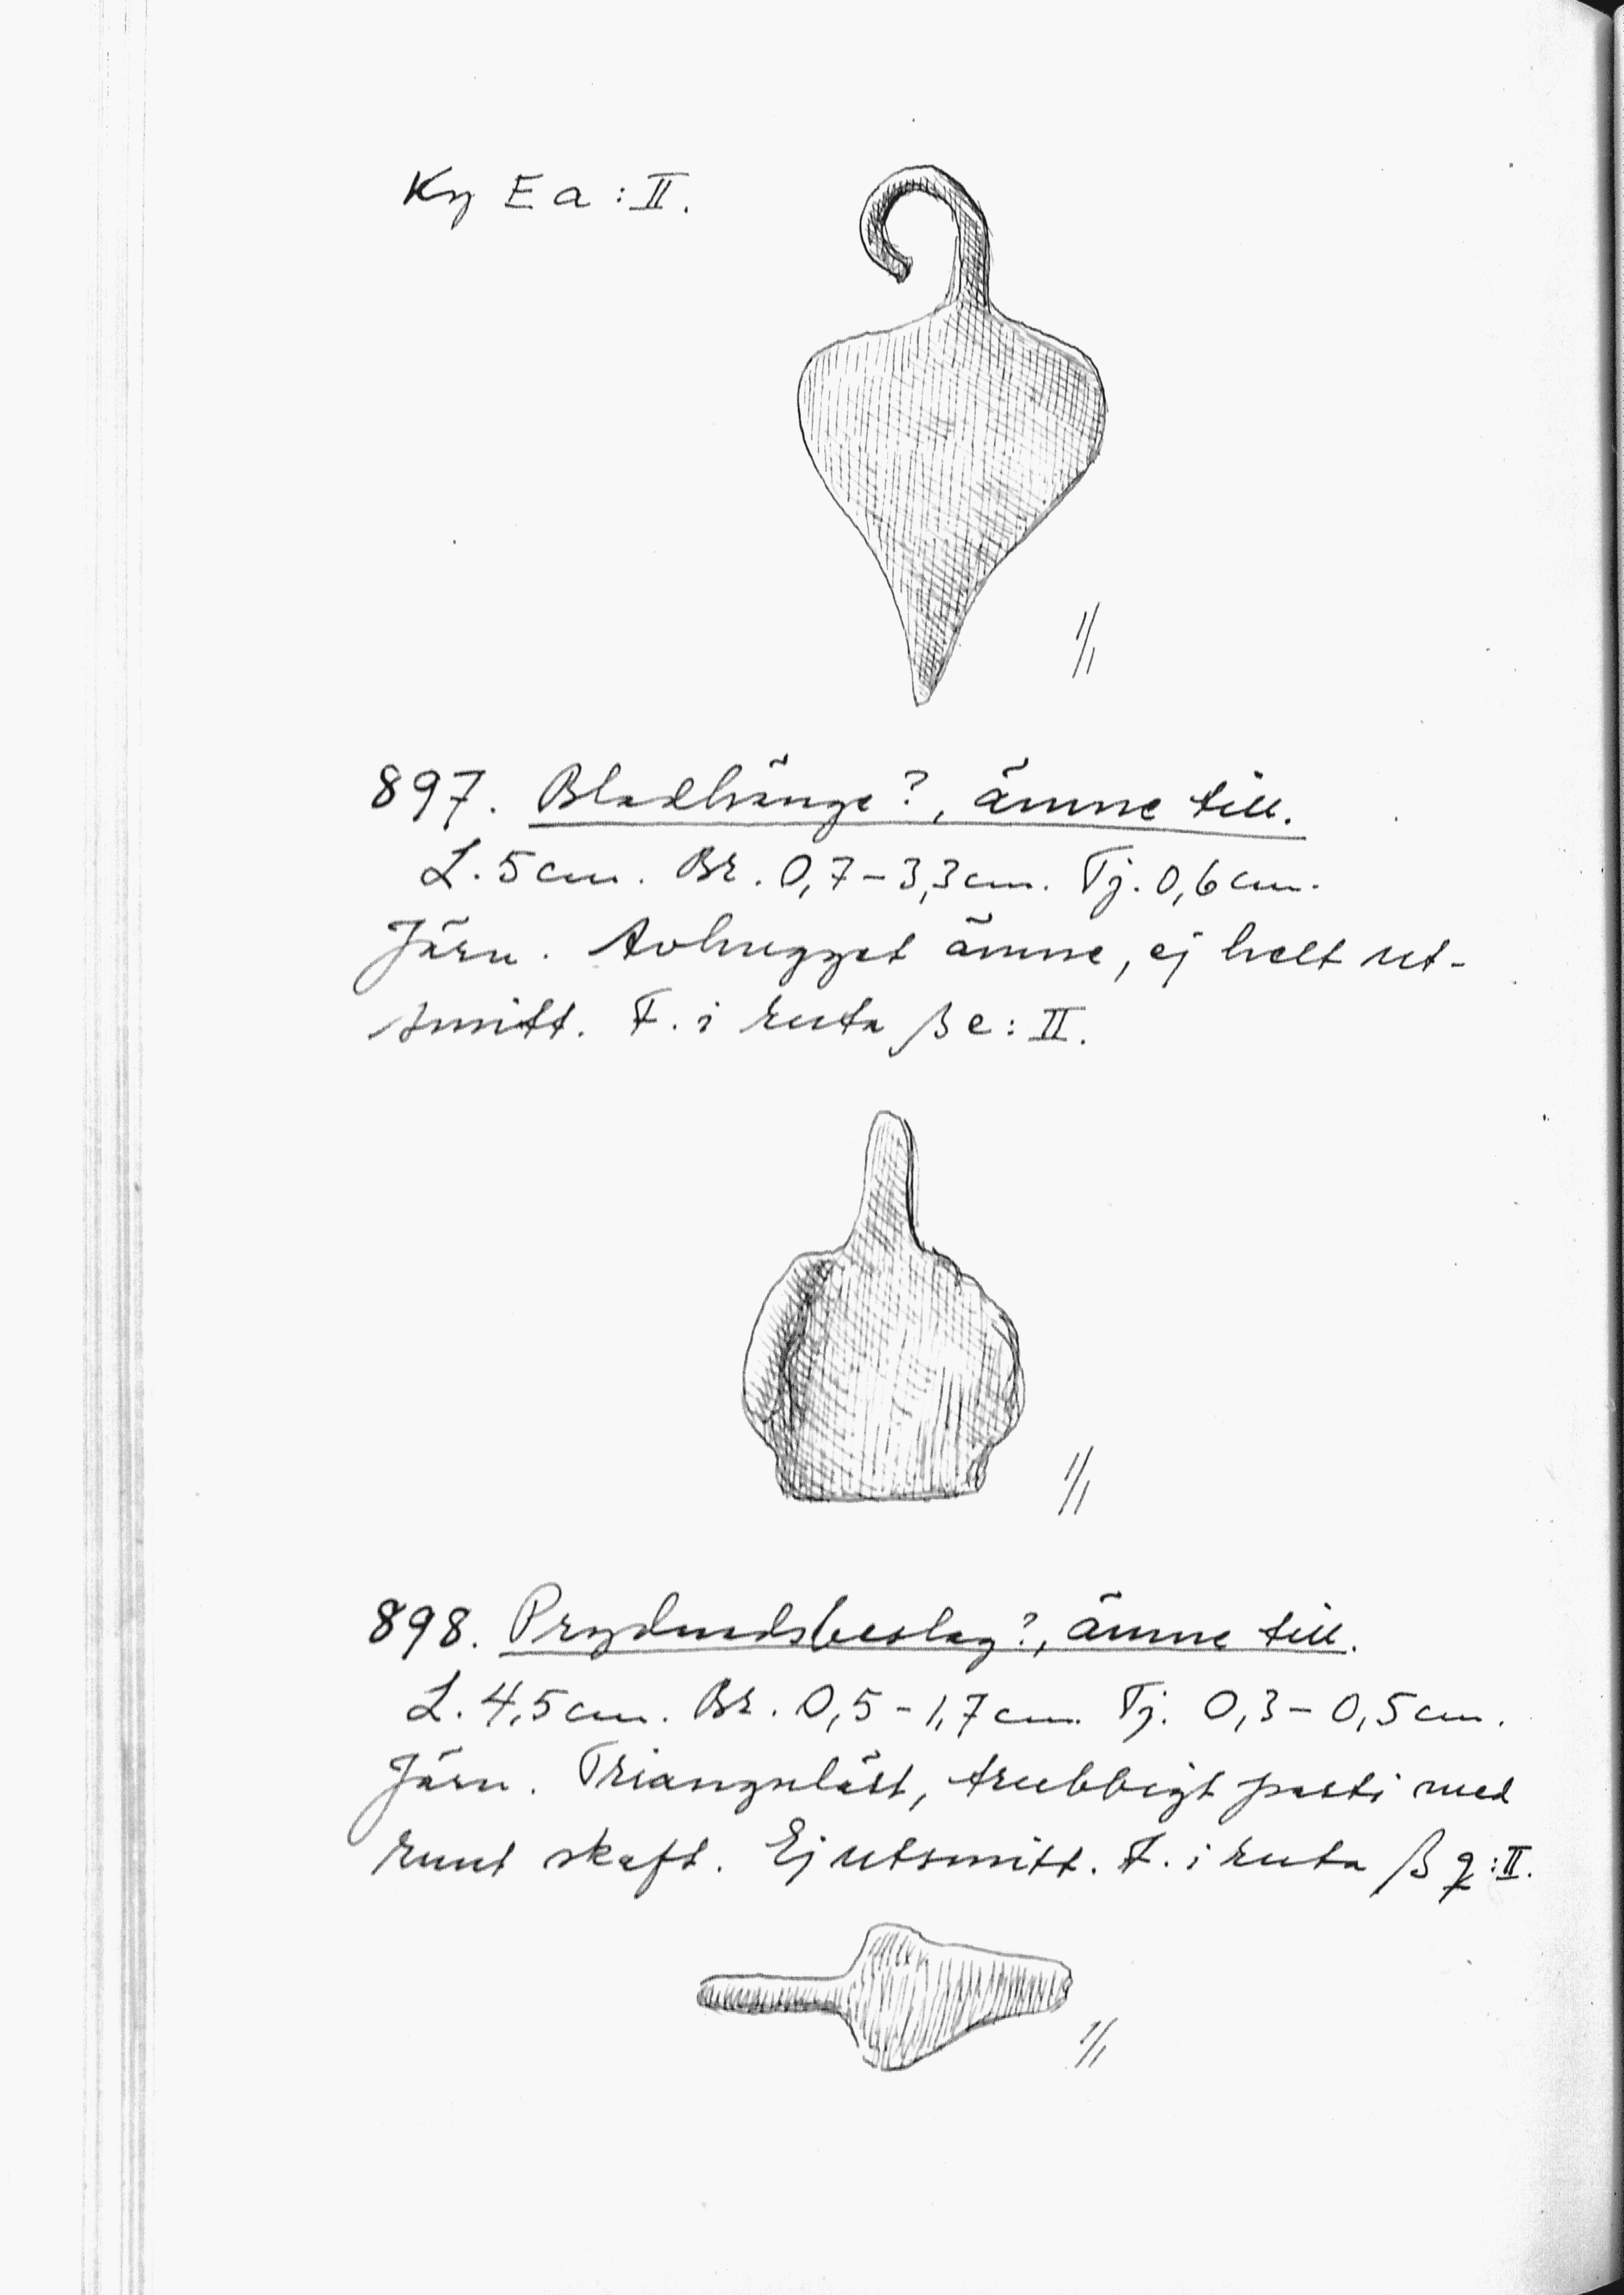 Ky E a : II.
1/1
897. Bladhänge?, ämne till.
L. 5 cm. Br. 0,7 – 3,3 cm. Tj. 0,6 cm.
Järn. Avhugget ämne, ej helt ut-
smitt. F. i ruta β e : II.
1/1
898. Prydnadsbeslag?, ämne till.
L. 4,5 cm. Br. 0,5 - 1,7 cm. Tj. 0,3 – 0,5 cm.
Järn. Triangulärt, trubbigt parti med
runt skaft. Ej utsmitt. F. i ruta β g : II.
1/1